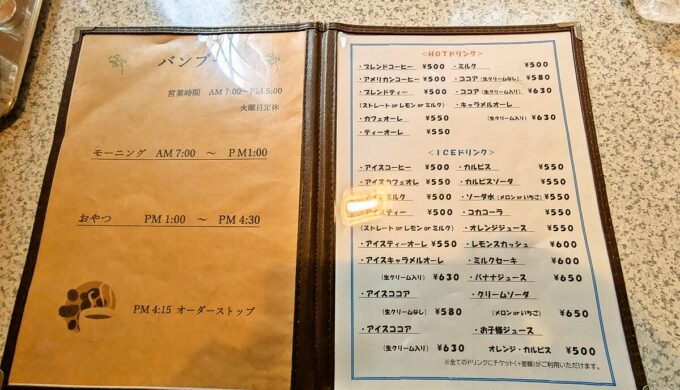 バンブー
営業時間 AM 7:00～PM 5:00
火曜日定休
モーニング AM 7:00 ～ PM1:00
おやつ PM 1:00 ～ PM 4:30
PM 4:15 オーダーストップ
<HOTドリンク>
・ブレンドコーヒー ¥500 ・ミルク ¥500
・アメリカンコーヒー ¥500 ・ココア (生クリームなし) ¥580
・ブレンドティー ¥500 ・ココア (生クリーム入り) ¥630
(ストレート or レモン or ミルク) ・キャラメルオーレ
・カフェオーレ ¥550 (生クリーム入り) ¥630
・ティーオーレ ¥550
<ICEドリンク>
・アイスコーヒー ¥500 ・カルピス ¥550
・アイスカフェオレ ¥550 ・カルピスソーダ ¥550
ミルク ¥500 ・ソーダ水 (メロン or いちご) ¥550
・アイスティー ¥500 ・コカコーラ ¥550
(ストレート or レモン or ミルク) ・オレンジジュース ¥550
・アイスティーオーレ ¥550 ・レモンスカッシュ ¥600
・アイスキャラメルオーレ ・ミルクセーキ ¥600
(生クリーム入り) ¥630 ・バナナジュース ¥650
・アイスココア ・クリームソーダ
(生クリームなし) ¥580 (メロン or いちご) ¥650
・アイスココア ・お子様ジュース
(生クリーム入り) ¥630 オレンジ・カルピス ¥500
※全てのドリンクにチケット(+差額)がご利用いただけます。